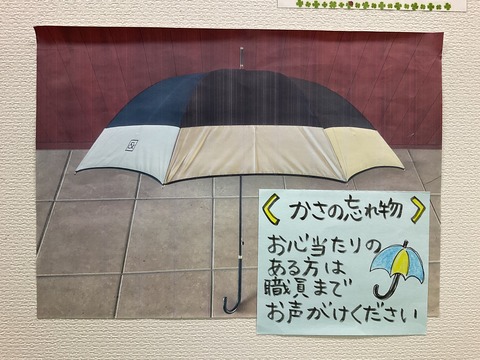 <かさの忘れ物>
お心当たりの
ある方は
職員まで
お声がけください